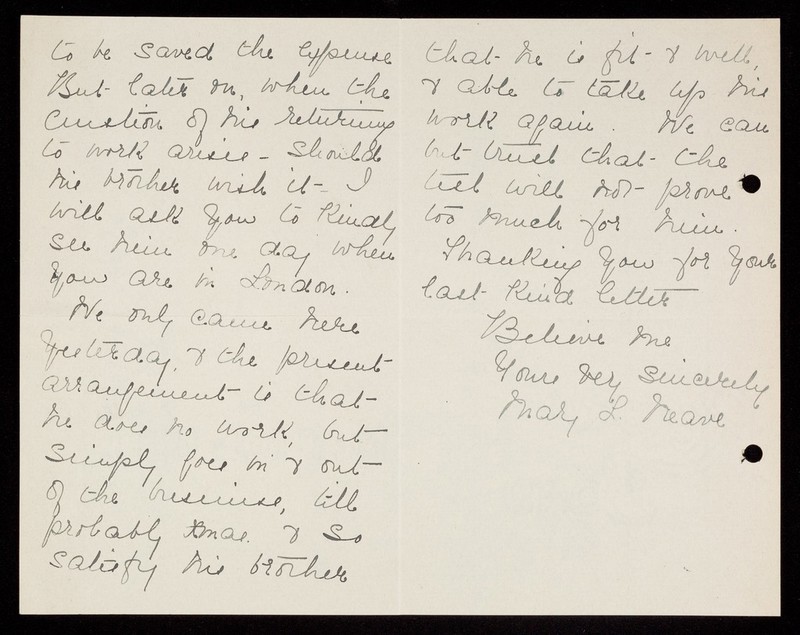 to be saved the expense
But later on, when the
question of his returning
to work arises - should
his brother wish it - I
will ask you to kindly
see him one day when
you are in London.
We only came here
yesterday, & the present
arrangement is that
he does no work, but
simply goes in & out
of the business, till
probably Xmas. & so
satisfy his brother
that he is fit & well,
& able to take up his
work again. We can
but trust that the
test will not prove
too much for him.
Thanking you for your
last kind letter
Believe me
Yours very sincerely
Mary L. Neave